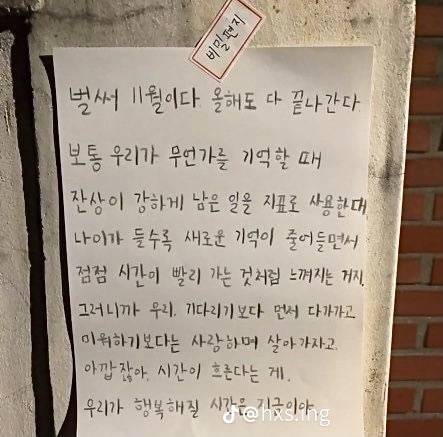 비밀편지
벌써 11월이다. 올해도 다 끝나간다.
보통 우리가 무언가를 기억할 때
잔상이 강하게 남은 일을 지표로 사용한대.
나이가 들수록 새로운 기억이 줄어들면서
점점 시간이 빨리 가는 것처럼 느껴지는 거지.
그러니까 우리. 기다리기보다 먼저 다가가고
미워하기보다는 사랑하며 살아가자고.
아깝잖아. 시간이 흐른다는 게.
우리가 행복해질 시간은 지금이야.
@hxs.ing